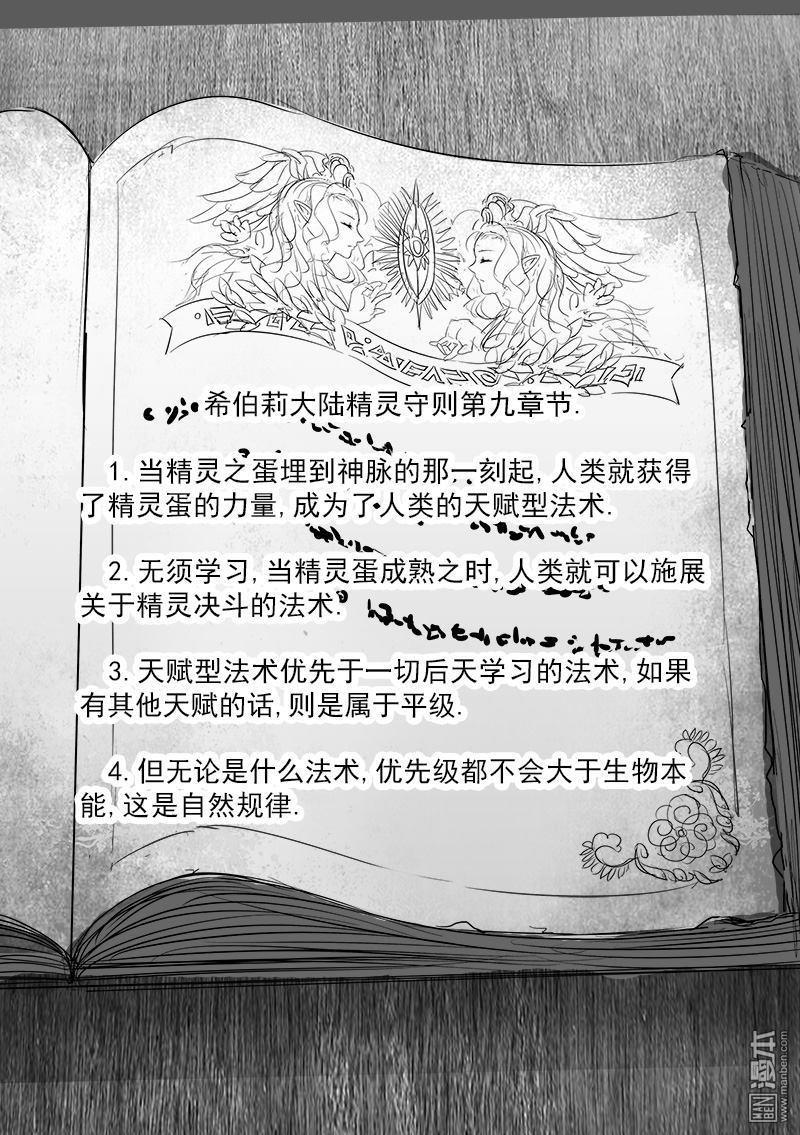 希伯莉大陆精灵守则第九章节.
1.当精灵之蛋埋到神脉的那一刻起,人类就获得
了精灵蛋的力量,成为了人类的天赋型法术.
2.无须学习,当精灵蛋成熟之时,人类就可以施展
关于精灵决斗的法术.
3.天赋型法术优先于一切后天学习的法术,如果
有其他天赋的话,则是属于平级.
4.但无论是什么法术,优先级都不会大于生物本
能,这是自然规律.
MAN
BEN
漫本
www.manben.com